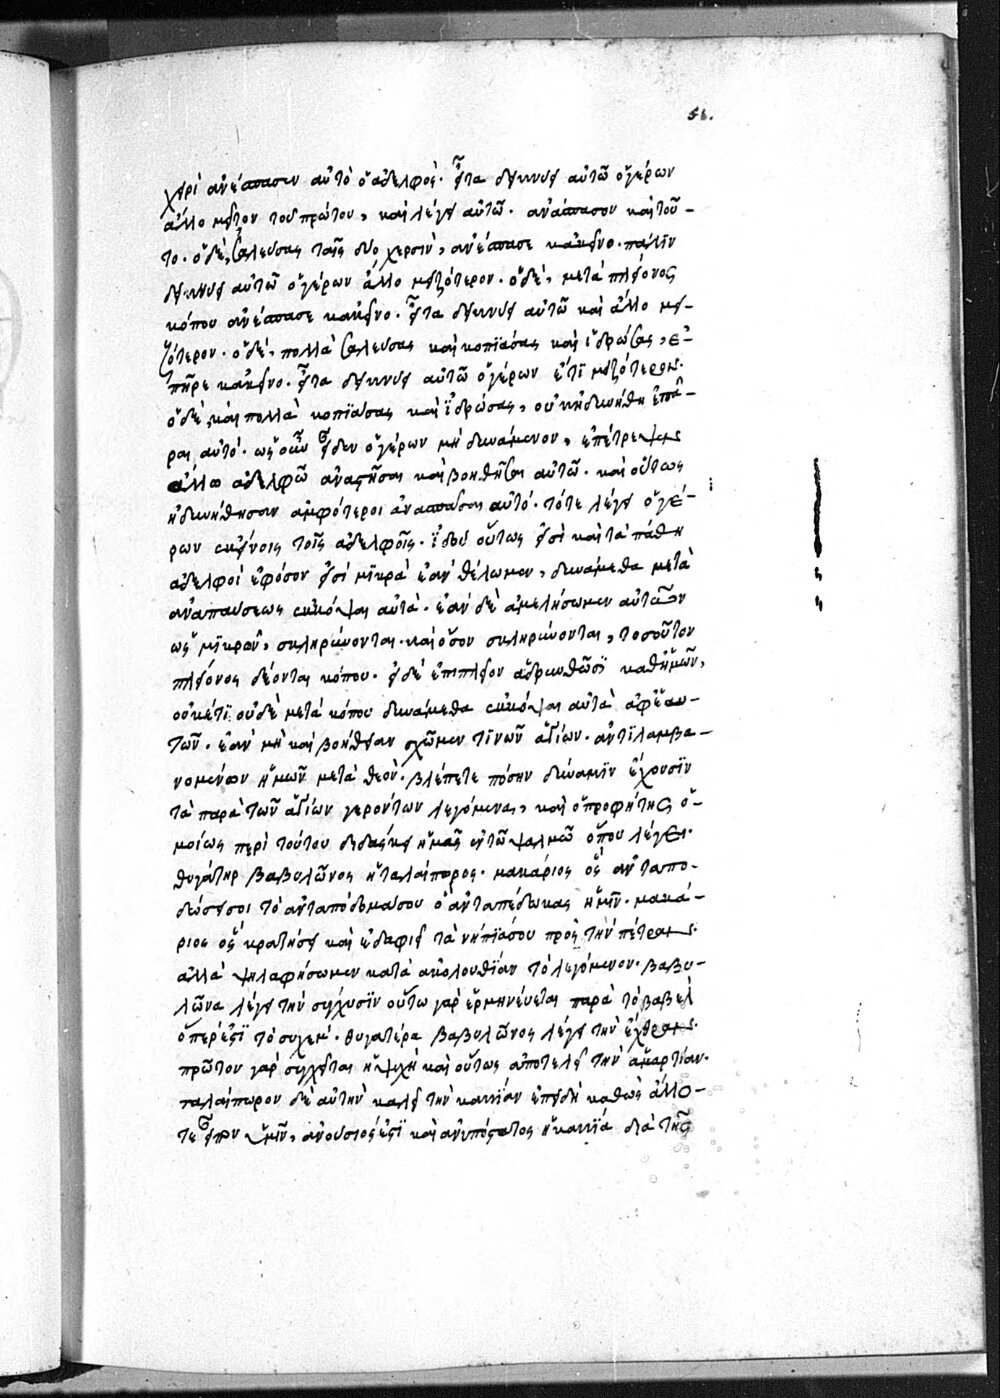 56.
χειρὶ ἀνέσπασεν αὐτὸ ὁ ἀδελφός. εἶτα δείκνυει αὐτῶ ὁ γέρων
ἄλλο μεῖζον τοῦ πρώτου, καὶ λέγει αὐτῶ. ἀνάσπασον καὶ τοῦ-
το. ὁ δὲ, σαλεύσας ταῖς δυο χερσὶν, ἀνέσπασε κἀκεῖνο. πάλϊν
δείκνυει αὐτῶ ὁ γέρων ἄλλο μειζότερον. ὁ δὲ, μετὰ πλείονος
κόπου ἀνέσπασε κακεῖνο. εἶτα δείκνυει αὐτῶ καὶ ἄλλο μει-
ζότερον. ὁ δὲ, πολλὰ σαλεύσας καὶ κοπϊάσας καὶ ἱδρώσας, ἐ-
πῆρε κακεῖνο. εἶτα δείκνυει αὐτῶ ὁ γέρων ἔτϊ μειζότερον.
ὁ δὲ, καὶ πολλὰ κοπϊάσας καὶ ἱδρώσας, οὐκ ἠδυνήθη ἐπᾶ-
ραι αὐτό. ὡς οὖν εἶδεν ὁ γέρων μὴ δυνάμενον, ἐπέτρεψεν
ἄλλω ἀδελφῶ ἀναστῆναι καὶ βοηθῆσαι αὐτῶ. καὶ οὕτως
ἠδυνήθησαν ἀμφότεροι ἀνασπάσαι αὐτό. τότε λέγει ὁ γέ-
ρων ἐκείνοις τοῖς ἀδελφοῖς. ἰδοὺ οὕτως εἰσὶ καὶ τὰ πάθη
ἀδελφοί ἐφόσον εἰσὶ μϊκρὰ ἐὰν θέλωμεν, δυνάμεθα μετὰ
ἀναπαύσεως ἐκκόψαι αὐτά. ἐὰν δὲ ἀμελήσωμεν αὐτῶν
ὡς μϊκρῶν, σκληρύνονται. καὶ ὅσον σκληρύνονται, τοσοῦτον
πλείονος δέονται κόπου. εἰ δὲ ἐπιπλεῖον ἁδρυνθῶσϊ καθ' ἡμῶν,
οὐκέτϊ οὐδὲ μετὰ κόπου δυνάμεθα ἐκκόψαι αὐτὰ ἀφ' ἑαυ-
τῶν. ἐὰν μὴ καὶ βοήθειαν σχῶμεν τϊνῶν ἁγίων. ἀντϊλαμβα-
νομένων ἡμῶν μετὰ θεόν. βλέπετε πόσην δύναμϊν ἔχουσϊν
τὰ παρὰ τῶν ἁγίων γερόντων λεγόμενα, καὶ ὁ προφήτης ὁ-
μοίως περὶ τούτου διδάσκει ἡμᾶς ἐν τῶ ψαλμῶ ὅπου λέγει.
θυγάτηρ βαβυλῶνος ἡ ταλαίπωρος. μακάριος ὃς ἀνταπο-
δώσει σοι τὸ ἀνταπόδομα σου ὃ ἀνταπέδωκας ἡμῖν. μακά-
ριος ὃς κρατήσει καὶ ἐδαφιεῖ τὰ νήπϊά σου πρὸς τὴν πέτραν.
ἀλλὰ ψηλαφήσωμεν κατὰ ἀκολουθϊαν τὸ λεγόμενον. βαβυ-
λῶνα λέγει τὴν σύγχυσϊν οὕτω γὰρ ἑρμηνεύεται παρὰ τὸ βαβὲλ
ὅπερ ἐστϊ τὸ συχέμ. θυγατέρα βαβυλῶνος λέγει τὴν ἔχθραν.
πρῶτον γὰρ συγχεῖται ἡ ψυχὴ καὶ οὕτως ἀποτελεῖ τὴν ἁμαρτίαν.
ταλαίπωρον δὲ αὐτὴν καλεῖ τὴν κακίαν ἐπειδὴ καθὼς ἄλλο-
τε εἶπον ὑμῖν, ἀνούσιός ἐστϊ καὶ ἀνυπόστατος ἡ κακϊά διὰ τῆς